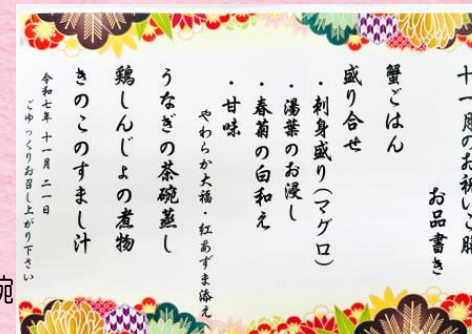 十一月のお祝いご膳
お品書き
蟹ごはん
盛り合せ
・刺身盛り(マグロ)
・湯葉のお浸し
・春菊の白和え
・甘味
やわらか大福・紅あずま添え
うなぎの茶碗蒸し
鶏しんじょの煮物
きのこのすまし汁
令和七年 十一月 二一日
ごゆっくりお召し上がり下さい
碗